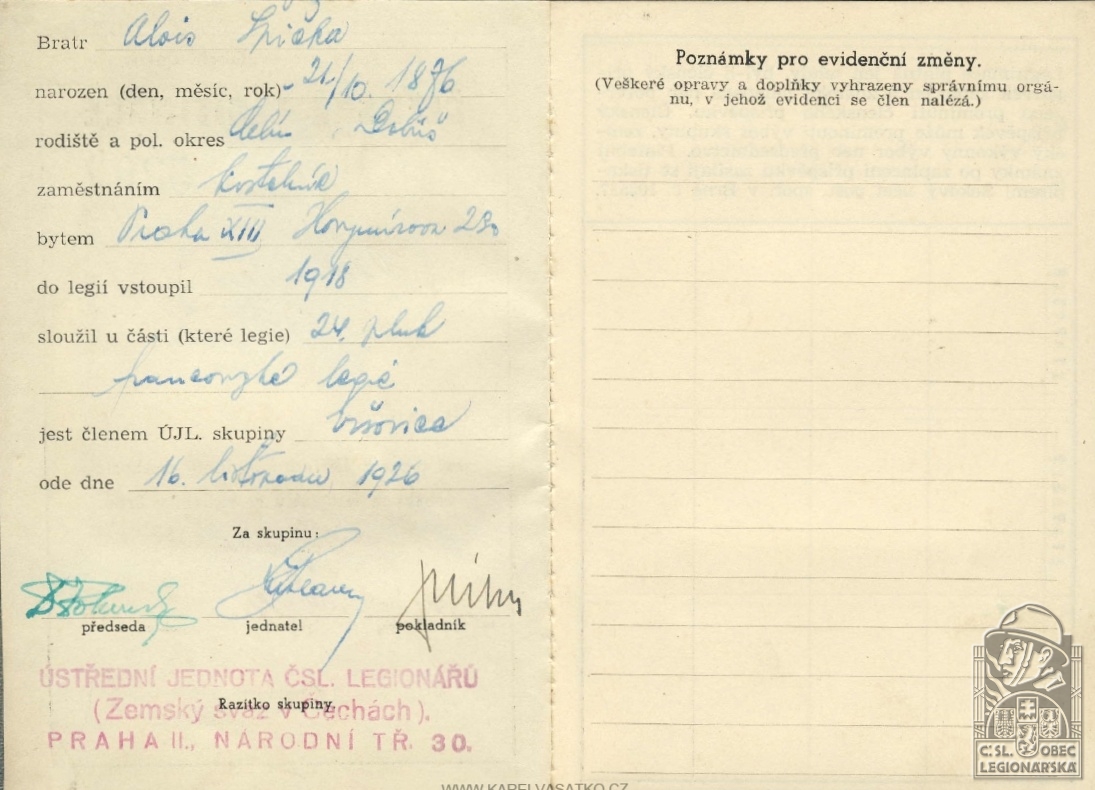 Bratr Alois Špička
narozen (den, měsíc, rok) 21/10. 1876
rodiště a pol. okres Dobříš
zaměstnáním kostelník
bytem Praha XIII Horymírova 280
do legií vstoupil 1918
sloužil u části (které legie) 24. pluk
francouzské legie
jest členem ÚJL. skupiny Vršovice
ode dne 16. listopadu 1926
Za skupinu:
předseda jednatel pokladník
ÚSTŘEDNÍ JEDNOTA ČSL. LEGIONÁŘŮ
Razítko skupiny.
(Zemský svaz v Čechách).
PRAHA II., NÁRODNÍ TŘ. 30.
Poznámky pro evidenční změny.
(Veškeré opravy a doplňky vyhrazeny správnímu orgá-
nu, v jehož evidenci se člen nalézá.)
Č.SL. OBEC
LEGIONÁŘSKÁ
WWW.KARELVASATKO.CZ